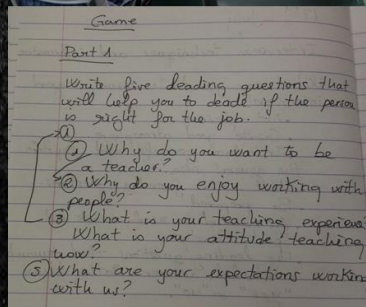 Game
Part 1
Write five leading questions that
will help you to decide if the person
is right for the job.
①
① Why do you want to be
a teacher?
② Why do you enjoy working with
people?
③ What is your teaching
What is your attitude teaching
now?
⑤ What are your expectations
with us?